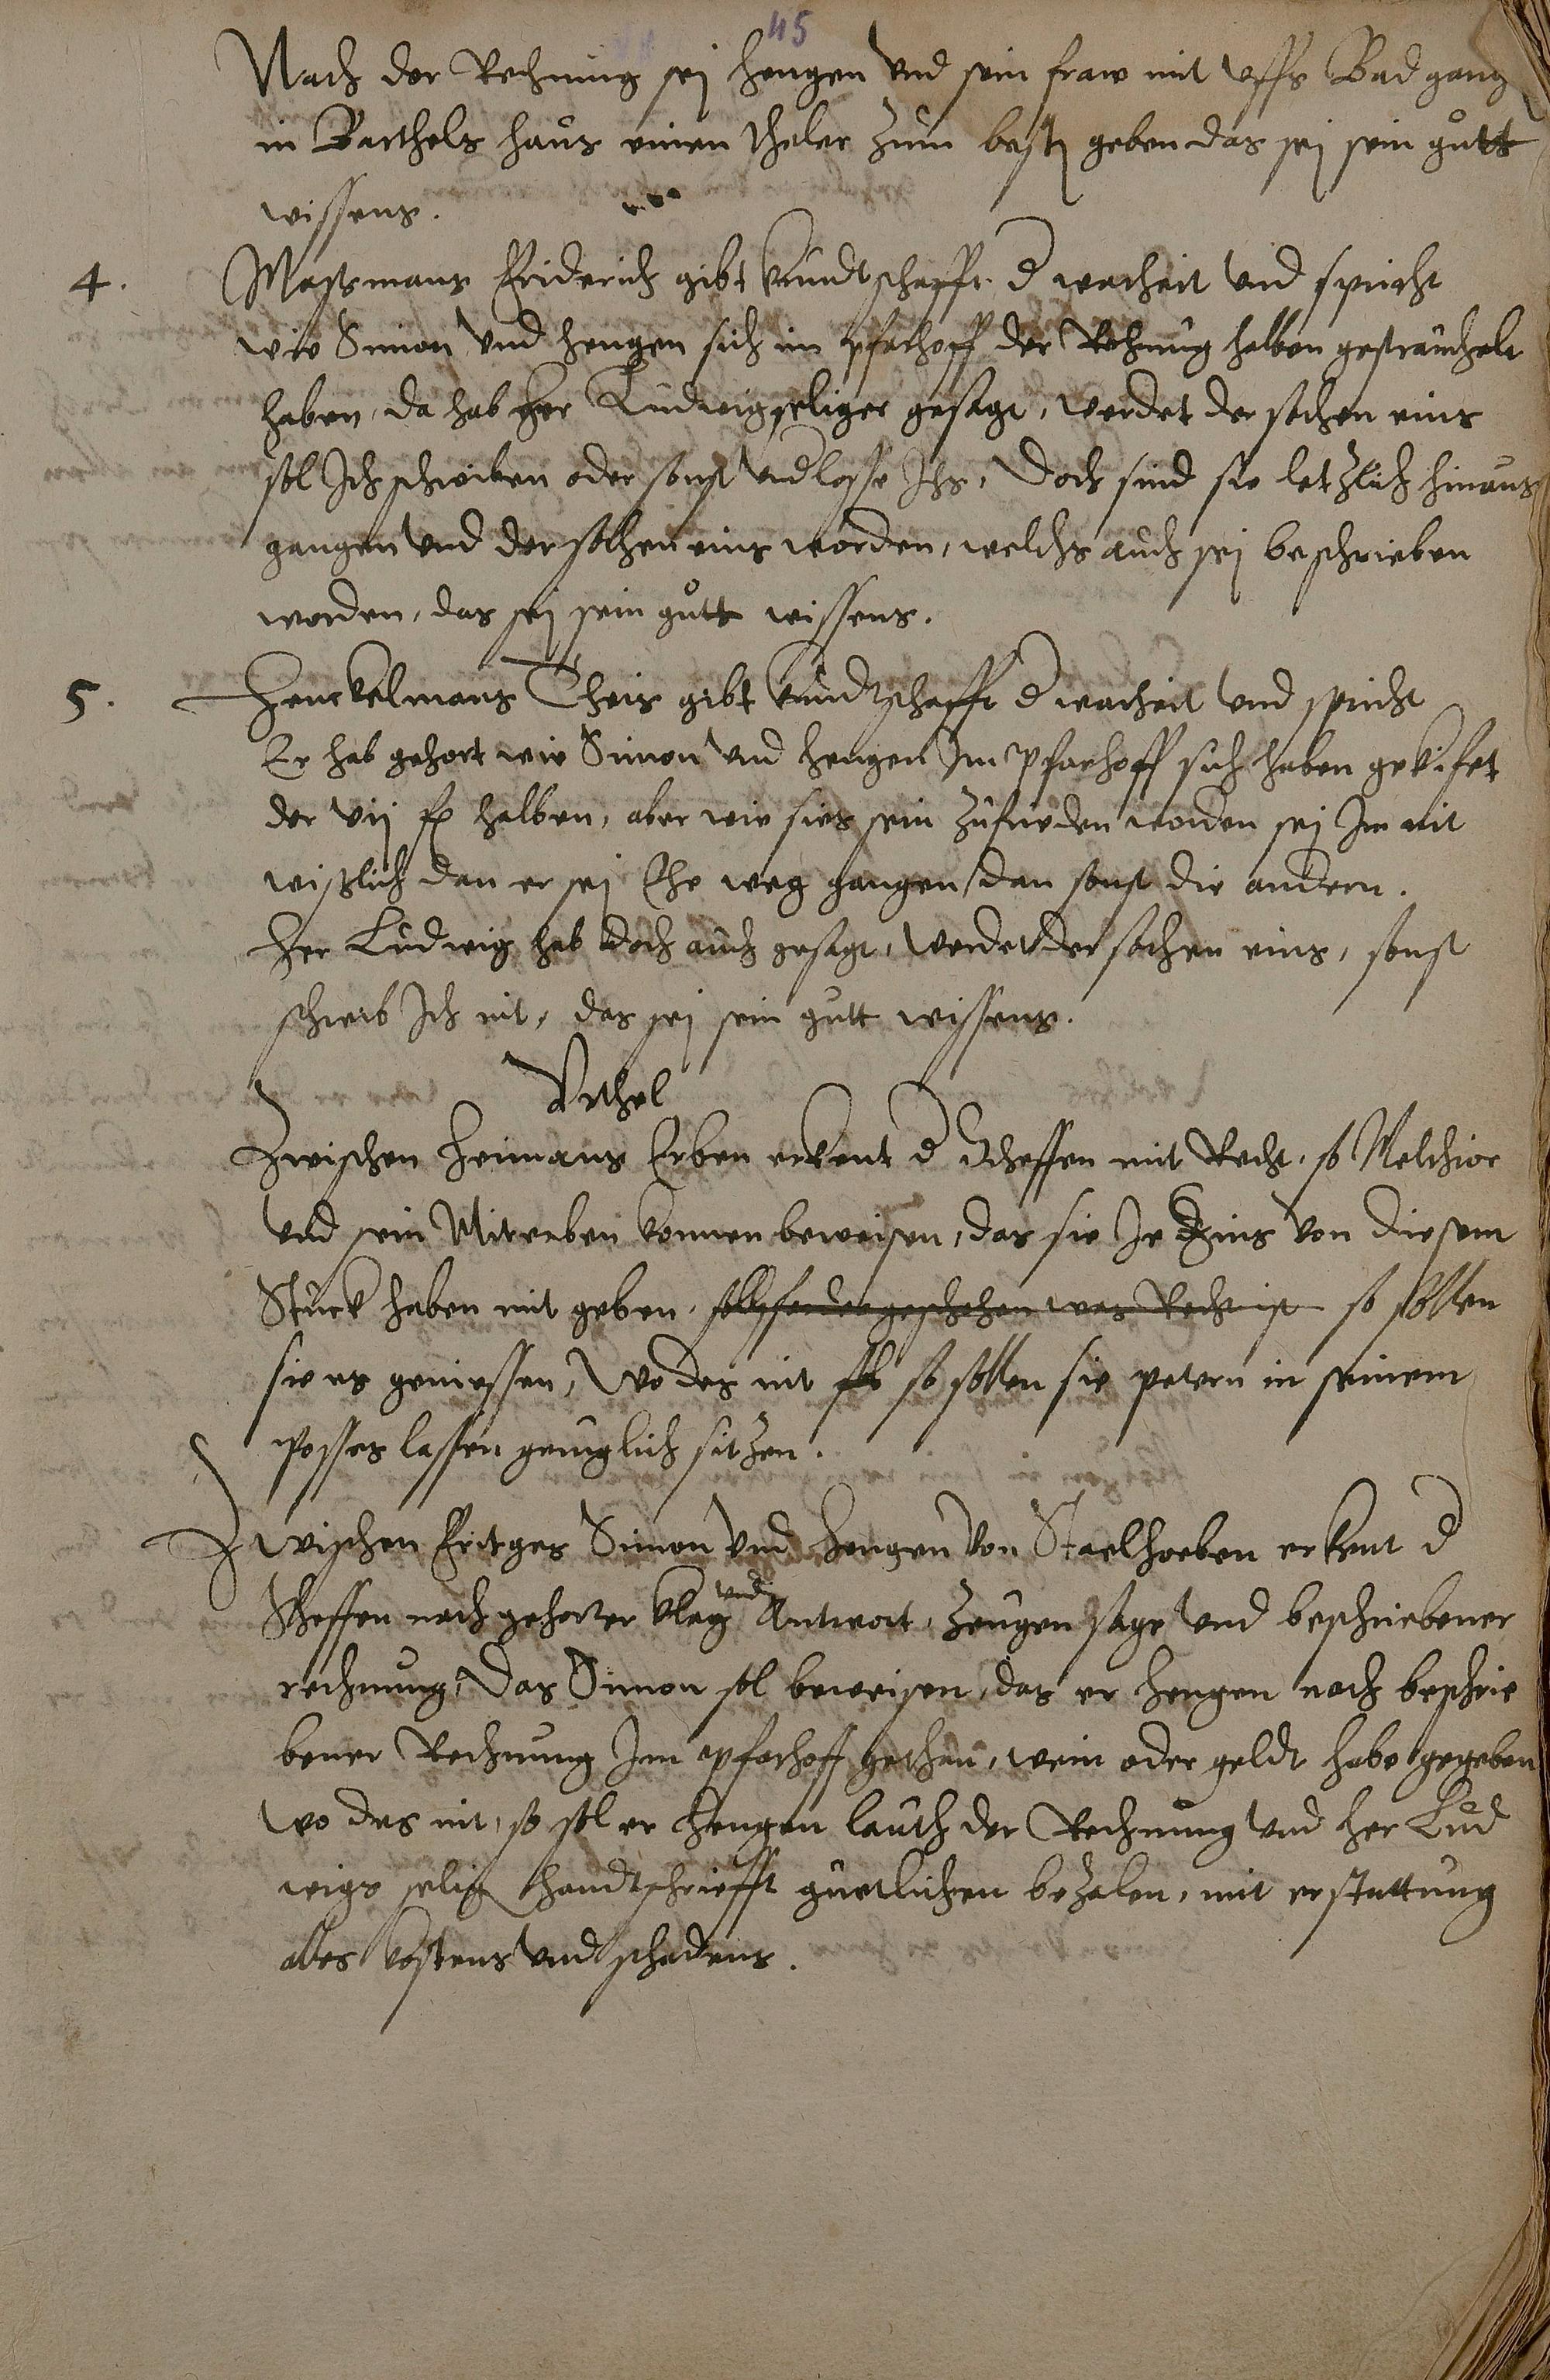 45
Nach der Rechnung sej Hengen vnd sein fraw mit vffs Bad gang
in Barthels haus einen theler zum besten geben das sej sein gutt
wissens.
4. Mastmans Friderich gibt kundtschafft d warheit vnd spricht
wie Simon vnd Hengen sich im pfarhoff der Rechnug halben gestrauchelt
haben, da hab Her Ludwig seliger gesagt, werdet der sachen eins
sol Ich schreiben oder sonst vnderlosse Ichs, doch sind sie letzlich hinaus
gangen vnd der sachen eins worden, welchs auch sej beschrieben
worden, das sej sein gutt wissens.
5. Henckelmans Theis gibt kundtschafft d warheit vnd spricht
Er hab gehort wie Simon vnd Hengen Im pfarhoff sich haben gekifet
der vij fl halben, aber wie sies sein zufrieden worden sej Im nit
wißlich dan er sej Ehe weg gangen dan sonst die andern.
Her Ludwig hab doch auch gesagt, werdet der sachen eins, sonst
schreib Ich nit, das sej sein gutt wissens.
Vrthel
Zwischen Heimans Erben erkent d Scheffen mit Recht, so Melchior
vnd sein Miterben konnen beweisen, das sie Je Zins von diesem
Stuck haben mit geben, geschehen was Recht ist so sollen
sie es geniessen, wo des nit so sollen sie petern in seinem
posses lassen geruglich sitzen.
Zwischen Fritges Simon vnd Hengen von Staelhoeben erkent d
Scheffen nach gehorter klag vnd Antwort, zeugen sage vnd beschriebener
rechnung, das Simon sol beweisen, das er Hengen nach beschrie
bener Rechnung Im pfarhoff gethan, wein oder geldt habe gegeben
wo des nit, so sol er Hengen lauth der Rechnung vnd her Lud
wigs selig handtschriefft guetlichen bezalen, mit erstattung
alles kostens vnd schadens.